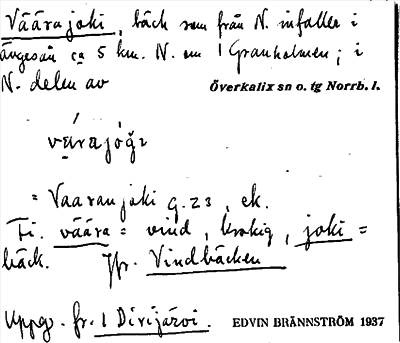 Väärajoki, bäck som från N. infaller i
ängesån ca 5 km. N. om 1 Granholmen; i
N. delen av Överkalix sn o. tg Norrb. l.
vä́rajóǧı
= Vaaranjoki G. 23, ek.
Fi. väära = vind, krokig, joki =
bäck. Jfr. Vindbäcken
Uppg. fr. 1 Dirijärvi. EDVIN BRÄNNSTRÖM 1937